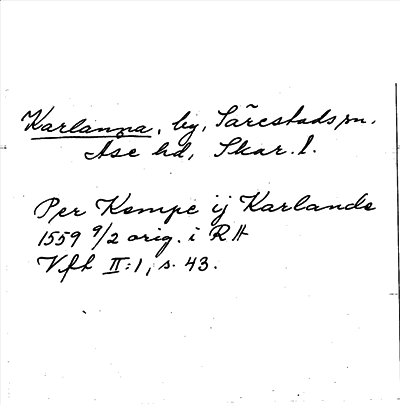 Karlanna, by, Särestads sn.
Åse hd, Skar. l.
Per Kempe ij Karlande
1559 9/2 orig. i RA
Vfh II:1, s. 43.